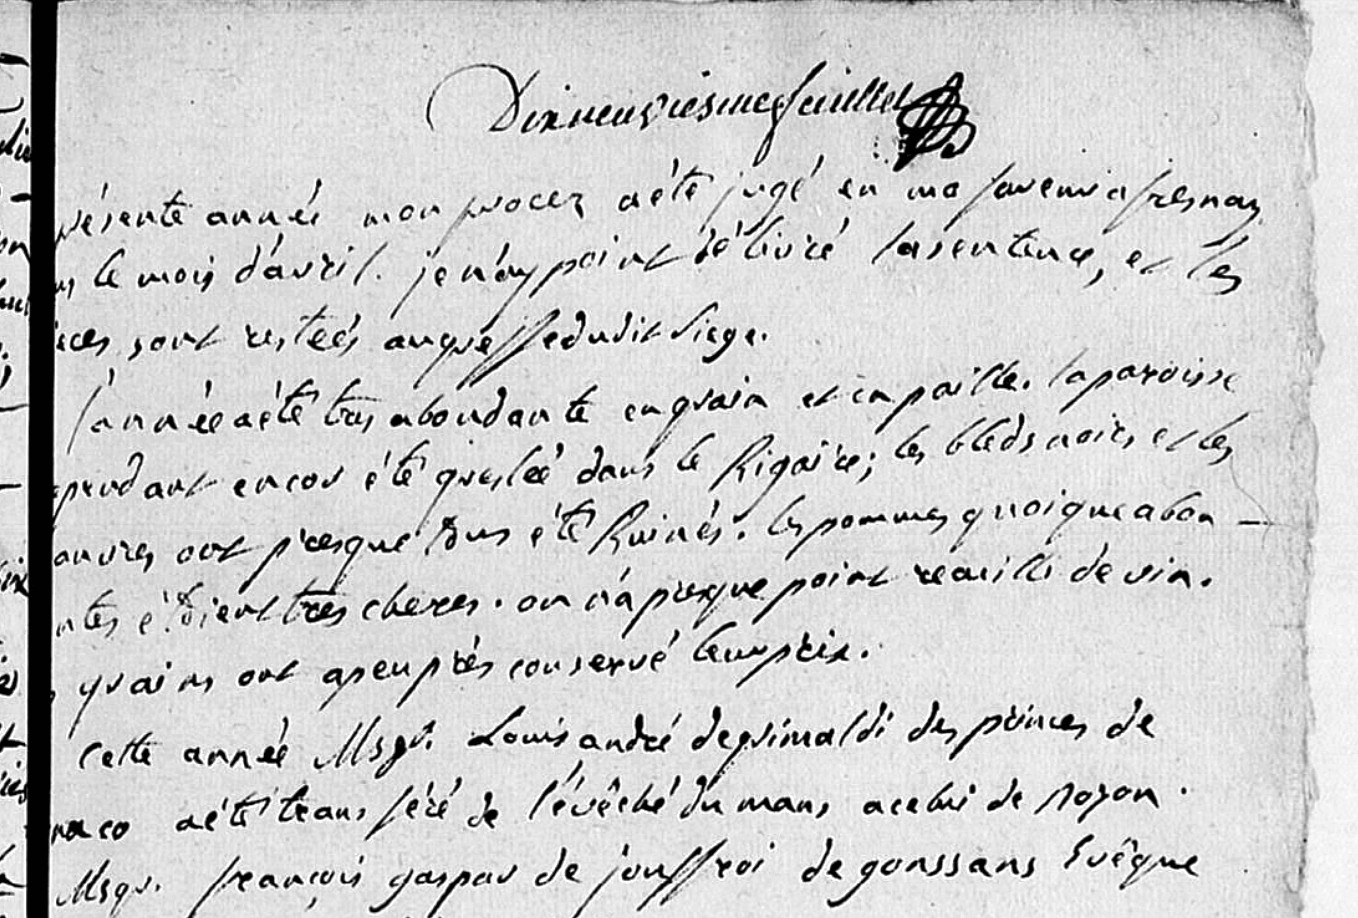 Dixneuviesme feuillet
présente année mon procez a été jugé en ma faveur a fresnay
le mois d'avril. je n'ay point délivré la sentence, et les
sont restéés au greffe dudit siege.
l'année a été tres abondante en grain et en paille. la paroisse
cependant encor été greslée dans le ; les bleds noirs et les
ont presque tous été Ruinés. les pommes quoique abon-
étoient tres cheres. on n'a presque point recuilli de vin.
grains ont apeuprés conservé leur prix.
cette année Msgr. Louis andré de grimaldi des princes de
naco a été transféré de l'évêché du mans a celui de noyon.
Msgr. françois gaspar de jouffroi de gonssans Evêque